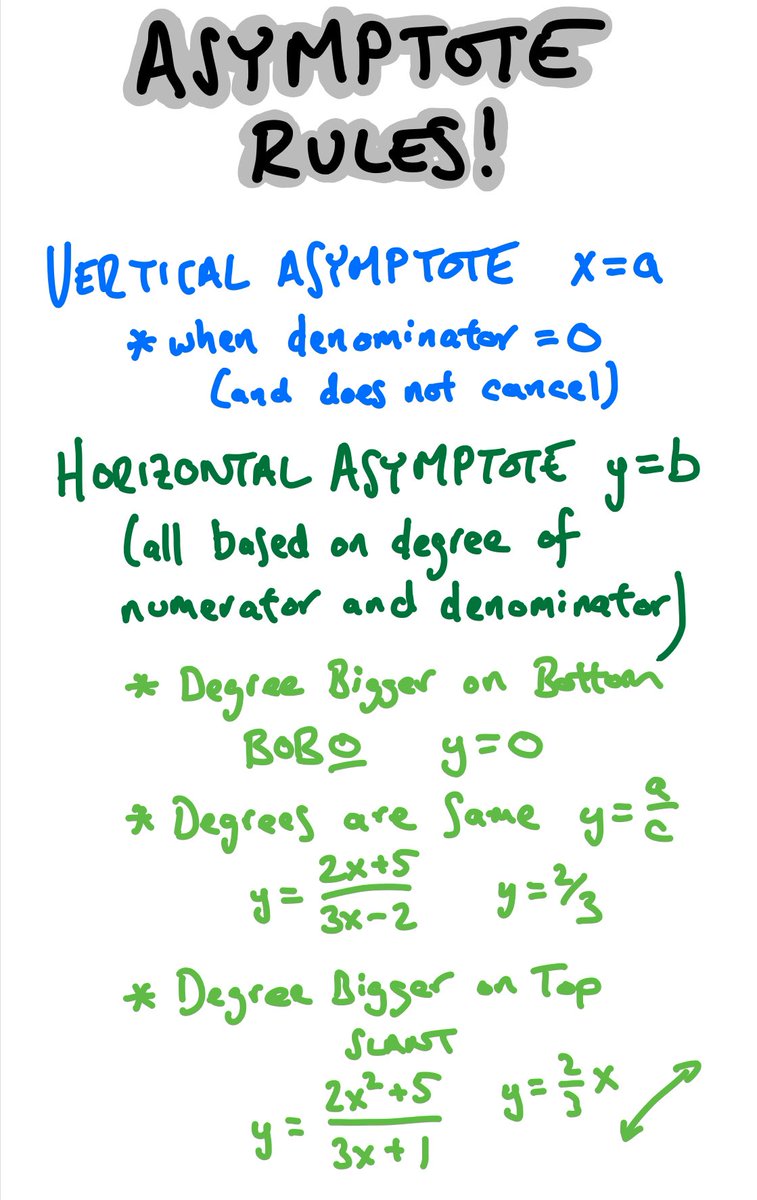 ASYMPTOTE
RULES!
VERTICAL ASYMPTOTE x=a
* when denominator = 0
(and does not cancel)
HORIZONTAL ASYMPTOTE y=b
(all based on degree of
numerator and denominator)
* Degree Bigger on Bottom
BOBO y=0
* Degrees are Same y=a/c
y= 2x+5/3x-2 y=2/3
* Degree Bigger on Top
SLANT
y= 2x²+5/3x+1 y=2/3 x